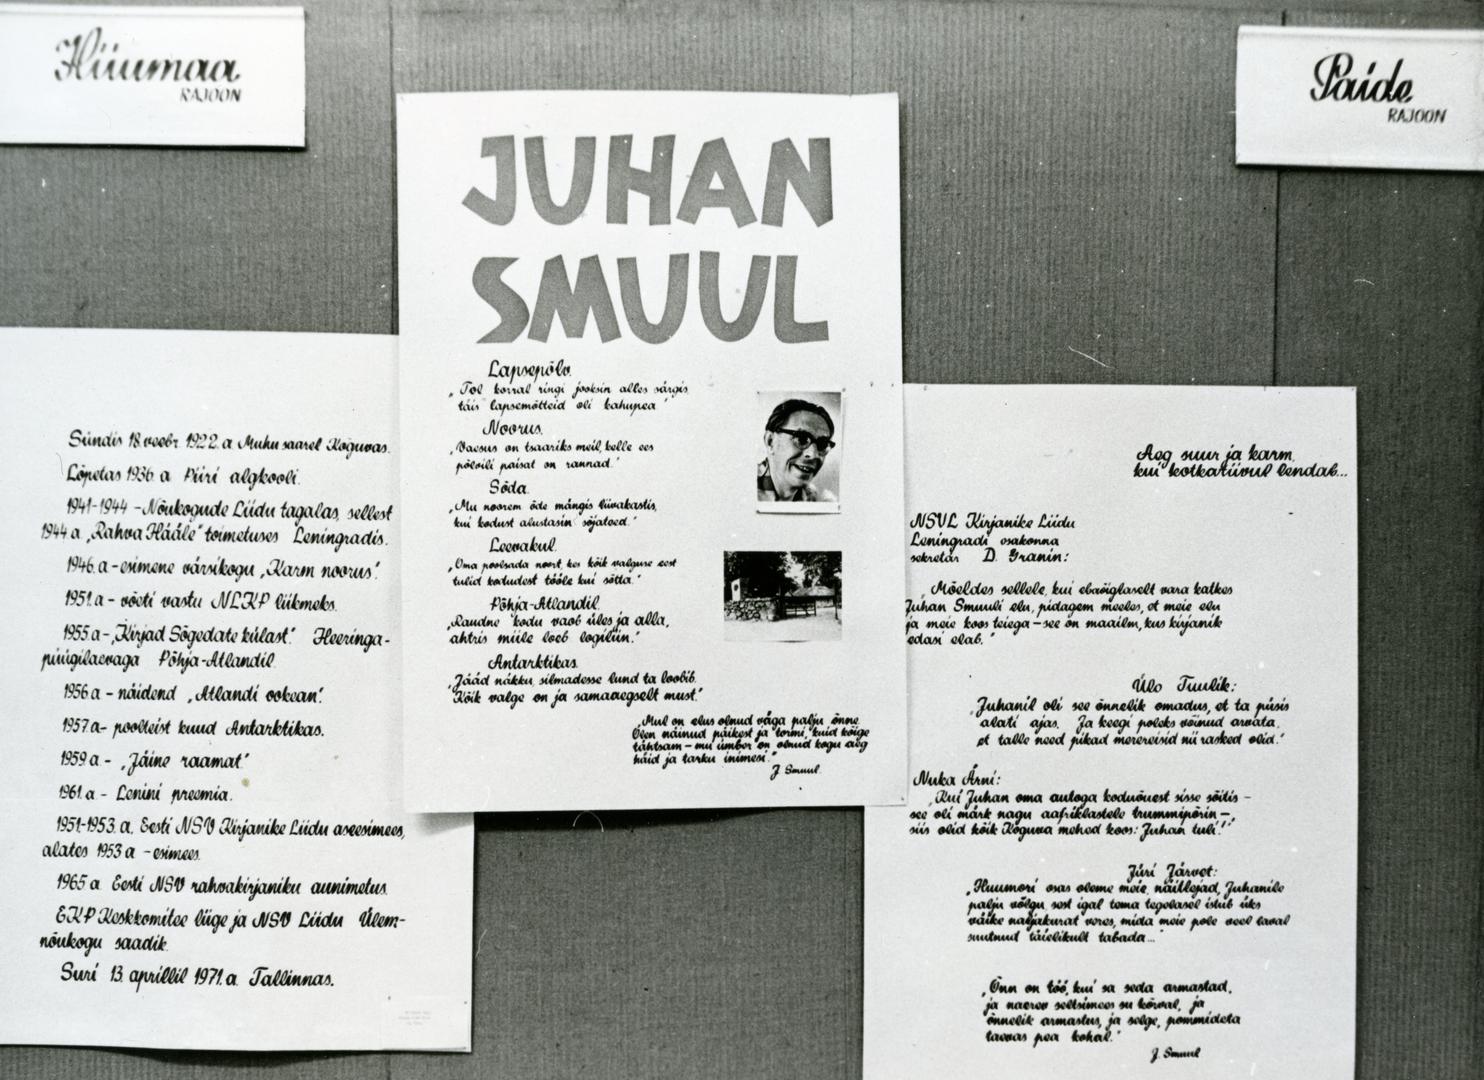 Hiiumaa
RAJOON
Paide
RAJOON
Sündis 18. veebr. 1922. a. Muhu saarel Koguvas.
Lõpetas 1936. a. Piiri algkooli.
1941-1944 - Nõukogude Liidu tagalas, sellest
1944. a. „Rahva Hääle" toimetuses Leningradis.
1946. a. - esimene värsikogu „Karm noorus".
1951. a. - võeti vastu NLKP liikmeks.
1955 a - „Kirjad Sõgedate külast." Heeringa-
püügilaevaga Põhja-Atlandil.
1956 a - näidend „Atlandi ookean".
1957. a - poolteist kuud Antarktikas.
1959 a - „Jäine raamat"
1961. a - Lenini preemia.
1951-1953. a. Eesti NSV Kirjanike Liidu aseesimees,
alates 1953 a - esimees.
1965 a. Eesti NSV rahvakirjaniku aunimetus.
EKP Keskkomitee liige ja NSV Liidu Ülem-
nõukogu saadik.
Suri 13. aprillil 1971. a. Tallinnas.
JUHAN
SMUUL
Lapsepõlv.
„Tol korral ringi jooksin alles särgis,
täis lapsemõtteid oli kahupea"
Noorus.
„Vaesus on tsaariks meil, kelle ees
põlvili paisat on rannad."
Sõda.
„Mu noorem õde mängis liivakastis,
kui kodust alustasin sõjateed."
Leevakul.
„Oma poolsada noort, kes kõik valguse eest
tulid kodudest tööle kui sõtta."
Põhja-Atlandil.
„Raudne kodu vaob üles ja alla,
ahtris miile loeb logiliin."
Antarktikas.
„Jääd näkku, silmadesse lund ta loobib.
Kõik valge on ja samaaegselt must."
„Mul on elus olnud väga palju õnne.
Olen näinud päikest ja tormi, kuid kõige
tähtsam - mu ümber on olnud kogu aeg
häid ja tarku inimesi."
J. Smuul.
Aeg suur ja karm,
kui kotkatiivul lendab...
NSVL Kirjanike Liidu
Leningradi osakonna
sekretär D. Granin:
„Mõeldes sellele, kui ebaõiglaselt vara katkes
Juhan Smuuli elu, pidagem meeles, et meie elu
ja meie koos teiega - see on maailm, kus kirjanik
edasi elab."
Ülo Tuulik:
„Juhanil oli see õnnelik omadus, et ta püsis
alati ajas. Ja keegi poleks võinud arvata,
et talle need pikad merereisid nii rasked olid."
Nuka Ärni:
„Kui Juhan oma autoga koduõuest sisse sõitis -
see oli märk nagu aafriklastele trummipõrin -,
siis olid kõik Koguva mehed koos: Juhan tuli!"
Jüri Järvet:
„Huumori osas oleme meie, näitlejad, Juhanile
palju võlgu, sest igal tema tegelasel istub üks
väike naljakurat veres, mida meie pole veel laval
suutnud täielikult tabada..."
„Õnn on töö, kui sa seda armastad,
ja naerev seltsimees su kõrval, ja
õnnelik armastus, ja selge, pommideta
taevas pea kohal."
J. Smuul